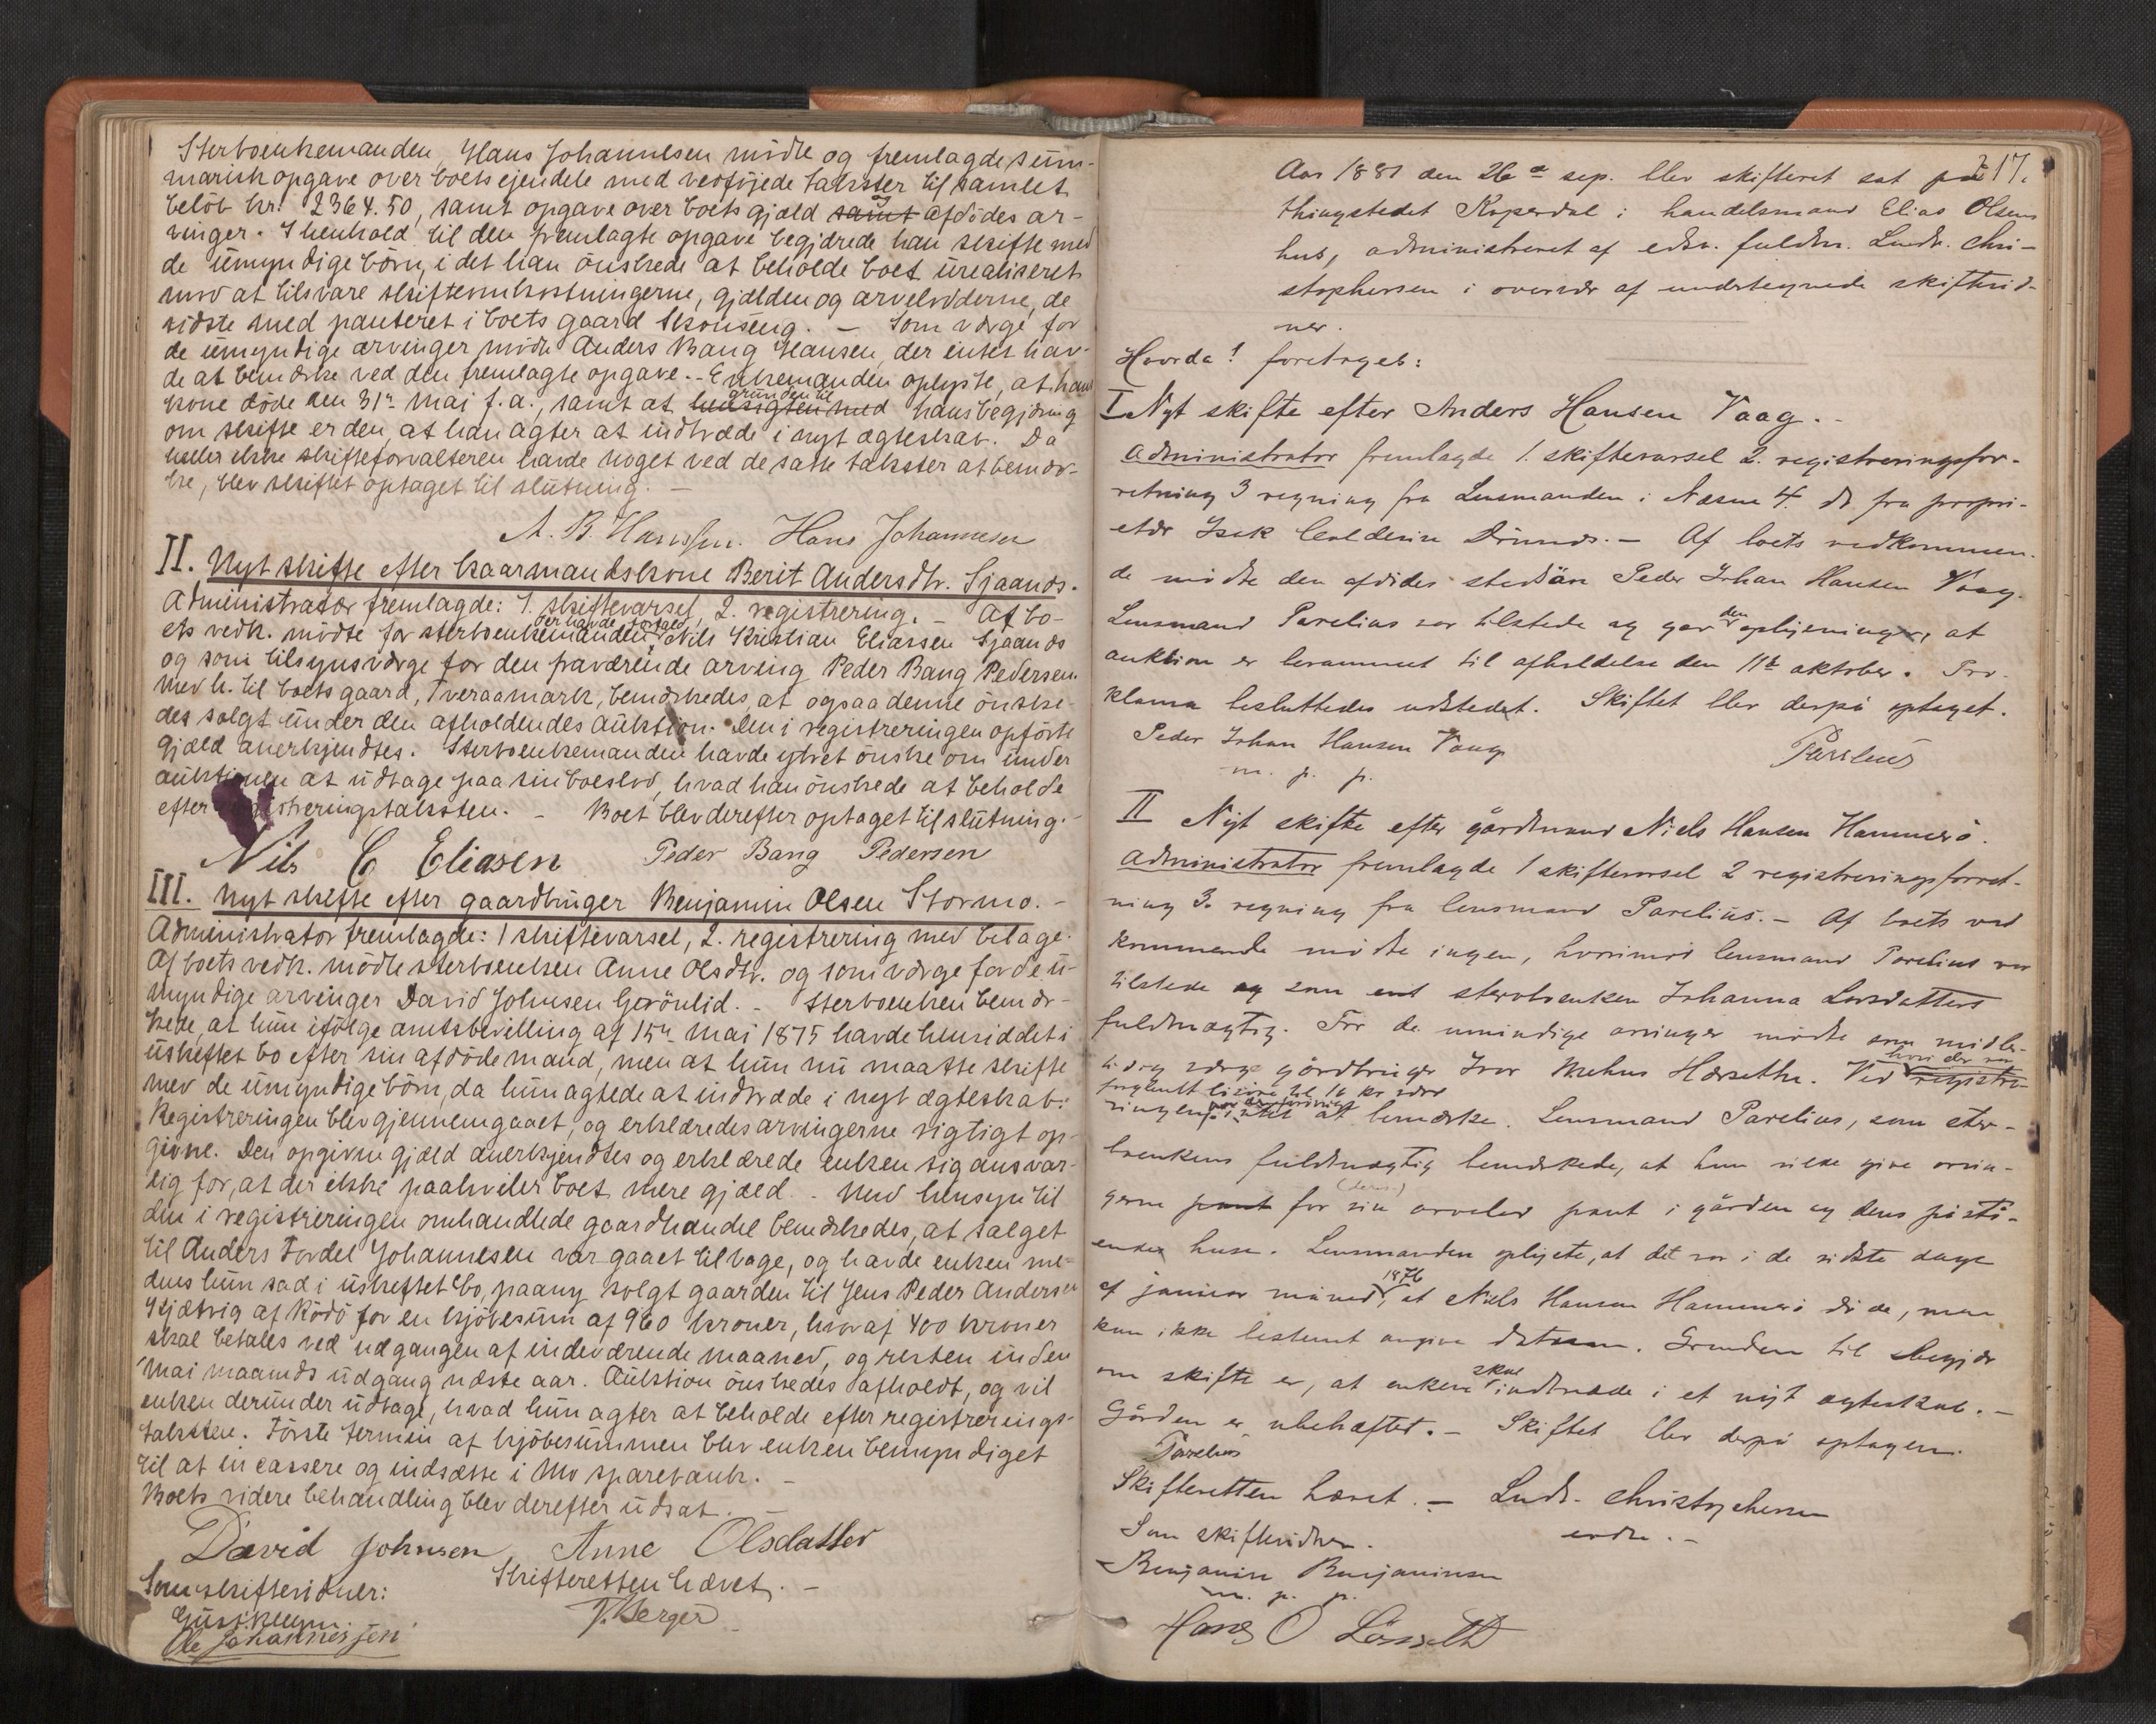 Sterboenkemanden, Hans Johannesen mödte og fremlagde sum-
marisk opgave over boets ejendele med vedföjede takster til samlet
belöb kr. 2364.50, samt opgave over boets gjæld samt og afdödes ar-
vinger. I henhold til den fremlagte opgave begjærede han skifte med
de umyndige börn, i det han önskede at beholde boet urealiseret
mod at tilsvare skifteomkostningerne, gjælden og arvelodderne, de
sidste med panteret i boets gaard Skonseng. – Som værge for
de umyndige arvinger mödte Anders Bang Hansen, der intet hav-
de at bemærke ved den fremlagte opgave. – Enkemanden oplyste, at hans
kone döde den 31te mai f.a., samt at hensigten med grunden til hans begjæring
om skifte er den, at han agter at indtræde i nyt ægteskab. Da
heller ikke skifteforvalteren havde noget ved de satte takster at bemær-
ke, blev skiftet optaget til slutning. –
A. B. Hanssen. Hans Johannesen
II. Nyt skifte efter kaarmandskone Berit Andersdtr. Sjaanæs.
Administrator fremlagde: 1. skiftevarsel, 2. registrering. – Af bo-
ets vedk. mödte for sterboenkemanden der havde forfald, Nils Kristian Eliassen Sjaanæs
og som tilsynsværge for den fraværende arving Peder Bang Pedersen.
Med h. til boets gaard, Tveraamark, bemærkedes, at ogsaa denne önske-
des solgt under den afholdendes auktion. Den i registreringen opförte
gjæld anerkjendtes. Sterboenkemanden havde ytret önske om under
auktionen at udtage paa sin boeslod, hvad han önskede at beholde
efter registreringstaksten. – Boet blev derefter optaget til slutning. –
Nils C Eliasen Peder Bang Pedersen
III. Nyt skifte efter gaardbruger Benjamin Olsen Stormo. –
Administrator fremlagde: 1 skiftevarsel, 2. registrering med bilage.
Af boets vedk. mödte sterboenken Anne Olsdtr. og som værge for de u-
myndige arvinger David Johnsen Grönlid. – Sterboenken bemær-
kede, at hun ifölge amtsbevilling af 15de mai 1875 havde hensiddet i
uskiftet bo efter sin afdöde mand, men at hun nu maatte skifte
med de umyndige börn, da hun agtede at indtræde i nyt ægteskab.
Registreringen blev gjennemgaaet, og erklæredes arvingerne rigtigt op-
givne. Den opgivne gjæld anerkjendtes og erklærede enken sig ansvar-
lig for, at der ikke paahviler boet mere gjæld. – Med hensyn til
den i registreringen omhandlede gaardhandel bemærkedes, at salget
til Anders Fordel Johannesen var gaaet tilbage, og havde enken me-
dens hun sad i uskiftet bo, paany solgt gaarden til Jens Peder Andersen
Kjætvig af Rödö for en kjöbesum af 960 kroner, hvoraf 400 kroner
skal betales ved udgangen af indeværende maaned, og resten inden
mai maaneds udgang næste aar. Auktion önskedes afholdt, og vil
enken derunder udtage, hvad hun agter at beholde efter registrerings-
taksten. Förste termin af kjöbesummen blev enken bemyndiget
til at incassere og indsætte i Mo sparebank. –
Boets videre behandling blev derefter udsat. –
David Johnsen Anne Olsdatter
Som skiftevidner: Skifteretten hævet. –
T. Berger
Ole Johannesen
217.
Aar 1881 den 26de sep. blev skifteret sat på
thingstedet Koperdal i handelsmand Elias Olsens
hus, administreret af edsv. fuldm. Ludv. Chri-
stophersen i overvær af undertegnede skiftevid-
ner.
Hvorda! foretoges:
I Nyt skifte efter Anders Hansen Vaag. –
Administrator fremlagde 1. skiftevarsel 2. registreringsfor-
retning 3 regning fra Lensmanden i Næsne 4. do fra propri-
etær Isak Coldevin Dönnæs. – Af boets vedkommen-
de mödte den afdödes stedsön Peder Johan Hansen Vaag.
Lensmand Parelius var tilstede og gav den oplysning, at
auktion er berammet til afholdelse den 11te oktober. Pro-
klama besluttedes udstedet. Skiftet blev derpå optaget.
Peder Johan Hansen Vaag Parelius
m. p. p.
II Nyt skifte efter gårdmand Niels Hansen Hammerö.
Administrator fremlagde 1 skiftevarsel 2 registreringsforret-
ning 3. regning fra lensmand Parelius. – Af boets ved
kommende mödte ingen, hvorimod lensmand Parelius var
tilstede og som sterboenken Johanna Larsdatters
fuldmægtig. For de umindige arvinger mödte som midler-
tidig værge gårdbruger Ivar Mehus Hæsethe. Ved registre- hvori der var
forglemt 16 kr
ringen intet at bemærke. Lensmand Parelius, som ster-
boenkens fuldmægtig bemærkede, at hun vilde give arvin-
gerne pant for sin (deres) arvelod pant i gården og dens påstå-
ende huse. Lensmanden oplyste, at det var i de sidste dage
af januar måned 1876, at Niels Hansen Hammerö döde, men
kan ikke bestemt angive datum. Grunden til begjær
om skifte er, at enken skal indtræde i et nyt ægteskab. –
Gården er ubehæftet. – Skiftet blev derpå optagen.
Parelius
Skifteretten hævet. – Ludv. Christophersen
Som skiftevidner. edsv. –
Benjamin Benjaminsen
m. p. p.
Hans O